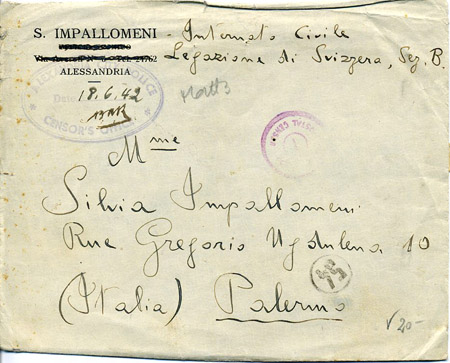 S. IMPALLOMENI - Internato Civile
Legazione di Svizzera, Sez. B.
ALESSANDRIA
POLICE
18.6.42
CENSOR'S OFFICE
Mme
Silvia Impallomeni
Rue Gregorio Ugdulena 10
(Italia) Palermo
V 20-